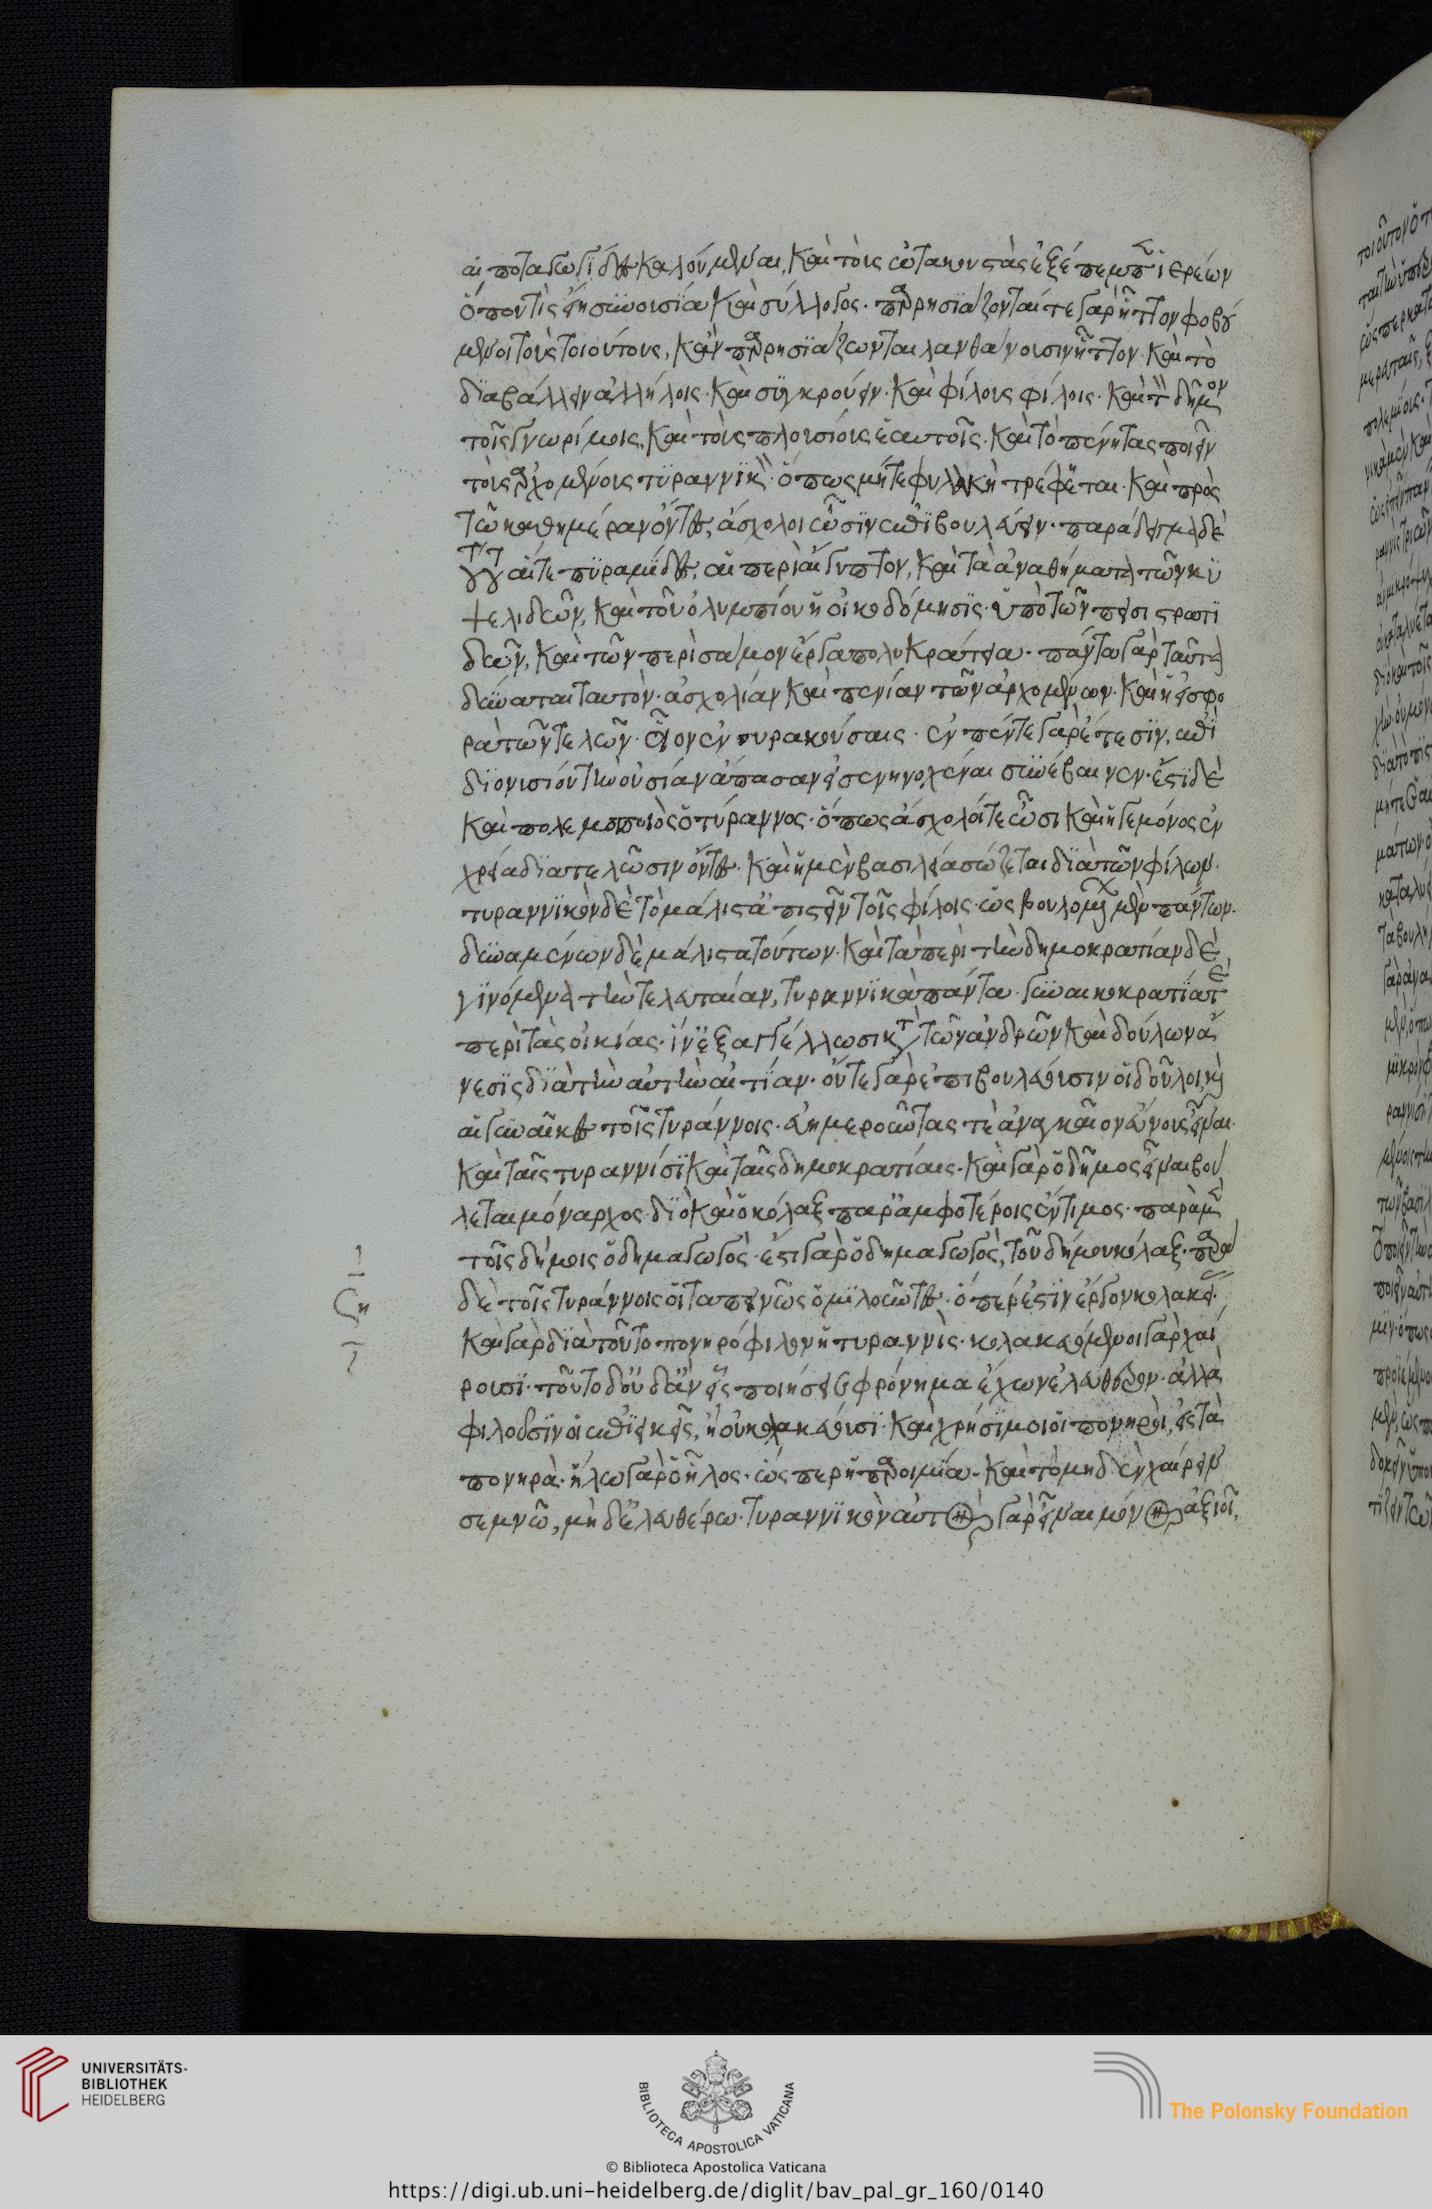 αἱ ποταγωγίδες καλούμεναι, καὶ τοὺς ὠτακουστὰς ἐξέπεμπεν ἱερέων
ὅπου τὶς εἴη συνουσία καὶ σύλλογος. παρρησϊάζονταί τε γὰρ ἧττον φοβού
μενοι τοὺς τοιούτους, κἂν παρρησϊάζωνται λανθάνουσιν ἧττον. καὶ τὸ
δϊαβάλλειν ἀλλήλοις. καὶ συγκρούειν. καὶ φίλους φίλοις. καὶ τὸν δῆμον
τοῖς γνωρίμοις, καὶ τοὺς πλουσίους ἑαυτοῖς. καὶ τὸ πένητας ποιεῖν
τοὺς ἀρχομένους τϋραννϊκὸν. ὅπως μήτε φυλακὴ τρέφηται. καὶ πρὸς
τῶ καθημέραν ὄντες, ἄσχολοι ὦσϊν ἐπϊβουλεύειν. παράδειγμα δὲ
τούτου αἵ τε πϋραμίδες, αἱ περὶ αἴγυπτον, καὶ τὰ ἀναθήματα τῶν κϋ
ψελιδῶν, καὶ τοῦ ὀλυμπίου ἡ οἰκοδόμησϊς. ὑπὸ τῶν πεισιστρατϊ
δῶν, καὶ τῶν περὶ σάμον ἔργα πολυκράτεια. πάντα γὰρ ταῦτα
δύναται ταυτὸν. ἀσχολίαν καὶ πενίαν τῶν ἀρχομένων. καὶ ἡ εἰσφο
ρὰ τῶν τελῶν. οἷον ἐν συρακούσαις. ἐν πέντε γὰρ ἔτεσϊν, ἐπὶ
δϊονισίου τὴν οὐσίαν ἅπασαν εἰσενηνοχέναι συνέβαινεν. ἔστϊ δὲ
καὶ πολεμοποιὸς ὁ τύραννος. ὅπως ἄσχολοί τε ὦσι καὶ ἡγεμόνος ἐν
χρεία δϊατελῶσιν ὄντες. καὶ ἡ μὲν βασιλεία σώζεται δϊὰ τῶν φίλων.
τυραννϊκὸν δὲ τὸ μάλιστα ἀπιστεῖν τοῖς φίλοις. ὡς βουλομένων μὲν πάντων.
δυναμένων δὲ μάλιστα τούτων. καὶ τὰ περὶ τὴν δημοκρατίαν δὲ
γϊνόμενα τὴν τελευταίαν, τυραννϊκὰ πάντα. γυναικοκρατία τε
περὶ τὰς οἰκίας. ἵν ἐξαγγέλλωσι κατὰ τῶν ἀνδρῶν καὶ δούλων ἄ
νεσϊς δϊὰ τὴν αὐτὴν αἰτίαν. οὔτε γὰρ ἐπιβουλεύουσιν οἱ δοῦλοι καὶ
αἱ γυναῖκες τοῖς τυράννοις. εὐημεροῦντας τὲ ἀναγκαῖον εὔνους εἶναι.
καὶ ταῖς τυραννίσϊ καὶ ταῖς δημοκρατίαις. καὶ γὰρ ὁ δῆμος εἶναι βού
λεται μόναρχος. δϊὸ καὶ ὁ κόλαξ παρ ἀμφοτέροις ἔντιμος. παρὰ μὲν
τοῖς δήμοις ὁ δημαγωγὸς. ἔστι γὰρ ὁ δημαγωγὸς, τοῦ δήμου κόλαξ. παρὰ
δὲ τοῖς τυράννοις οἱ ταπεινῶς ὁμϊλοῦντες. ὅπέρ ἐστϊν ἔργον κολακείας.
καὶ γὰρ δϊὰ τοῦτο πονηρόφιλον ἡ τυραννὶς. κολακευόμενοι γὰρ χαί
ρουσϊ. τοῦτο δ οὐδ ἂν εἷς ποιήσειε φρόνημα ἔχων ἐλεύθερον. ἀλλὰ
φιλοῦσϊν οἱ ἐπϊεικεῖς, ἢ οὐ κολακεύουσϊ. καὶ χρήσϊμοι οἱ πονηροὶ, εἰς τὰ
πονηρά. ἥλω γὰρ ὁ ἧλος. ὥς περ ἡ παροιμία. καὶ τὸ μηδενὶ χαίρειν
σεμνῶ, μὴ δ ἐλευθέρω. τυραννϊκὸν αὐτὸν γὰρ εἶναι μόνον ἀξιοῖ,
UNIVERSITÄTS-
BIBLIOTHEK
HEIDELBERG
BIBLIOTECA APOSTOLICA VATICANA
© Biblioteca Apostolica Vaticana
The Polonsky Foundation
https://digi.ub.uni-heidelberg.de/diglit/bav_pal_gr_160/0140